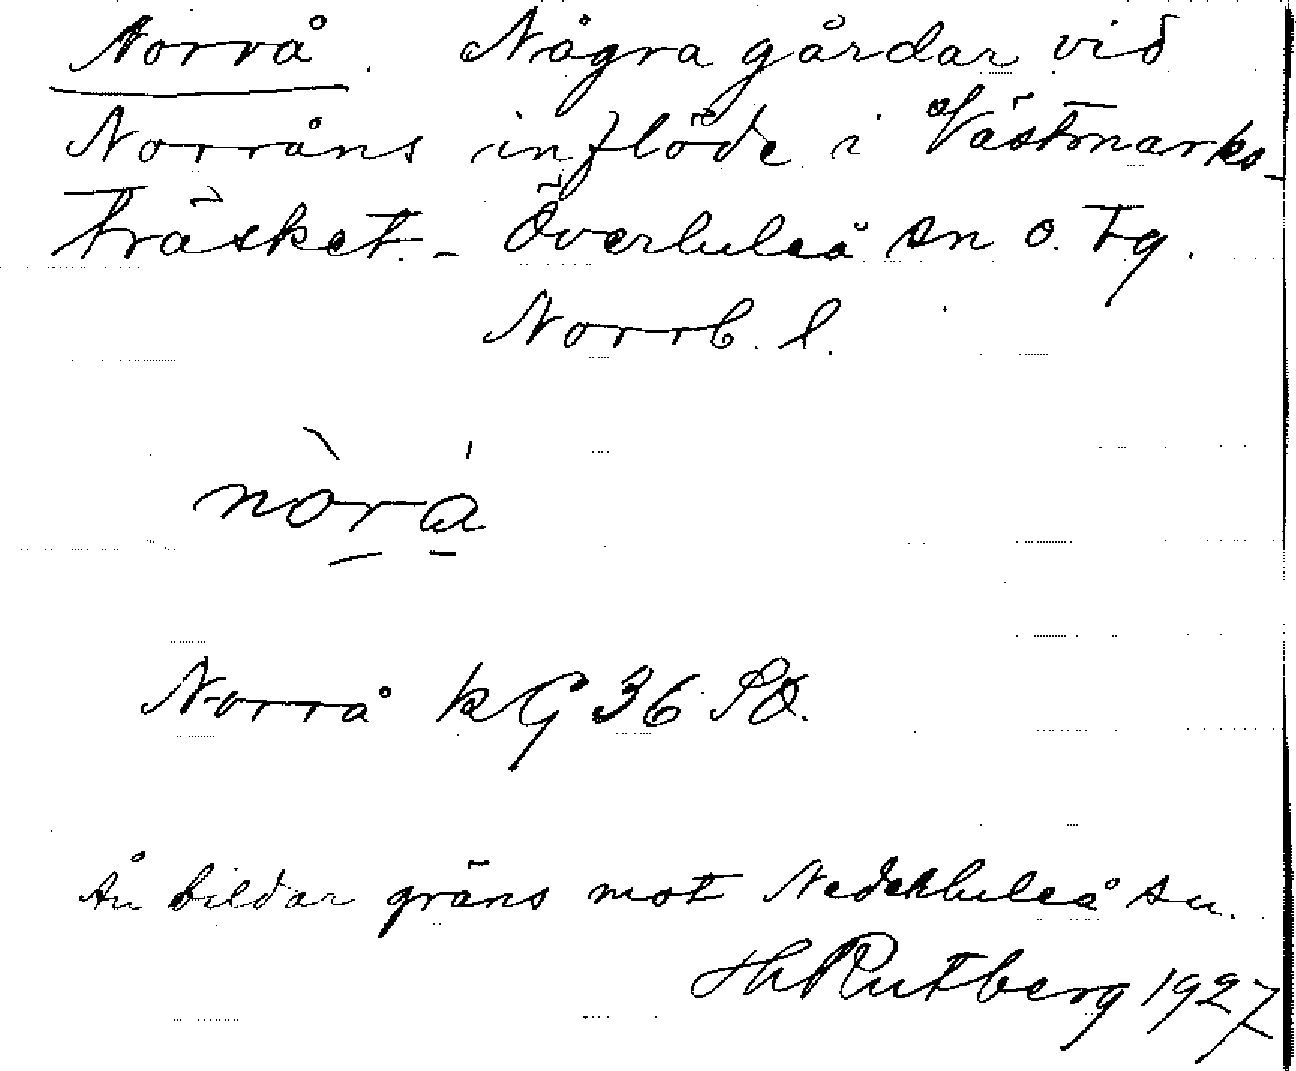 Norrå. Några gårdar vid
Norråns inflöde i Västmarks-
träsket. - Överluleå sn o. tg.
Norrb. l.
nòrá
Norrå kG 36 SO.
Ån bildar gräns mot Nederluleå sn.
Hh Rutberg 1927